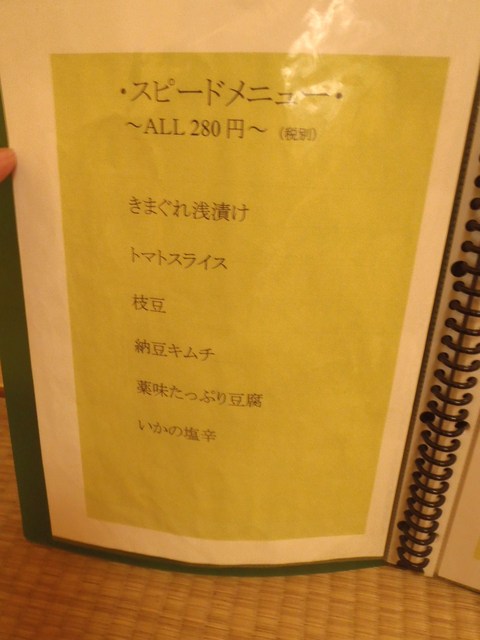 ・スピードメニュー・
～ALL 280円～ (税別)
きまぐれ浅漬け
トマトスライス
枝豆
納豆キムチ
薬味たっぷり豆腐
いかの塩辛